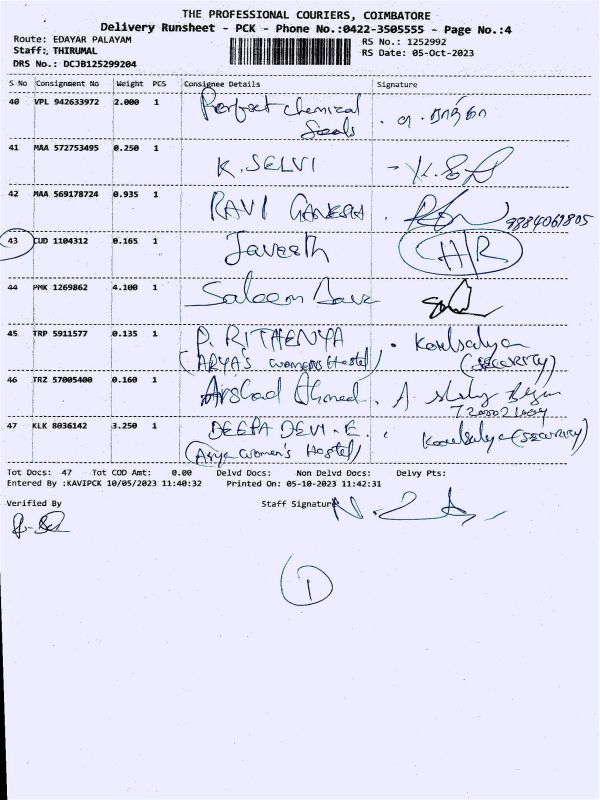 THE PROFESSIONAL COURIERS, COIMBATORE
Delivery Runsheet - PCK - Phone No.:0422-3505555 - Page No.:4
Route: EDAYAR PALAYAM RS No.: 1252992
Staff: THIRUMAL RS Date: 05-Oct-2023
DRS No.: DCJB125299204
S No Consignment No Weight PCS Consignee Details Signature
40 VPL 942633972 2.000 1 Perfect chemical
Seals
41 MAA 572753495 0.250 1 K. SELVI
42 MAA 569178724 0.935 1 RAVI GANESH 9884061805
43 CUD 1104312 0.165 1 Javeeth H/R
44 PMK 1269862 4.100 1 Saleem
45 TRP 5911577 0.135 1 P. RITHENYA Kowsalya
(ARYA's womens Hostel) (SECURITY)
46 TRZ 57005400 0.160 1 Arshad Ahmed. A
47 KLK 8036142 3.250 1 DEEPA DEVI. E. Kowsalya (SECURITY)
(Arya women's Hostel)
Tot Docs: 47 Tot COD Amt: 0.00 Delvd Docs: Non Delvd Docs: Delvy Pts:
Entered By :KAVIPCK 10/05/2023 11:40:32 Printed On: 05-10-2023 11:42:31
Verified By Staff Signature
1